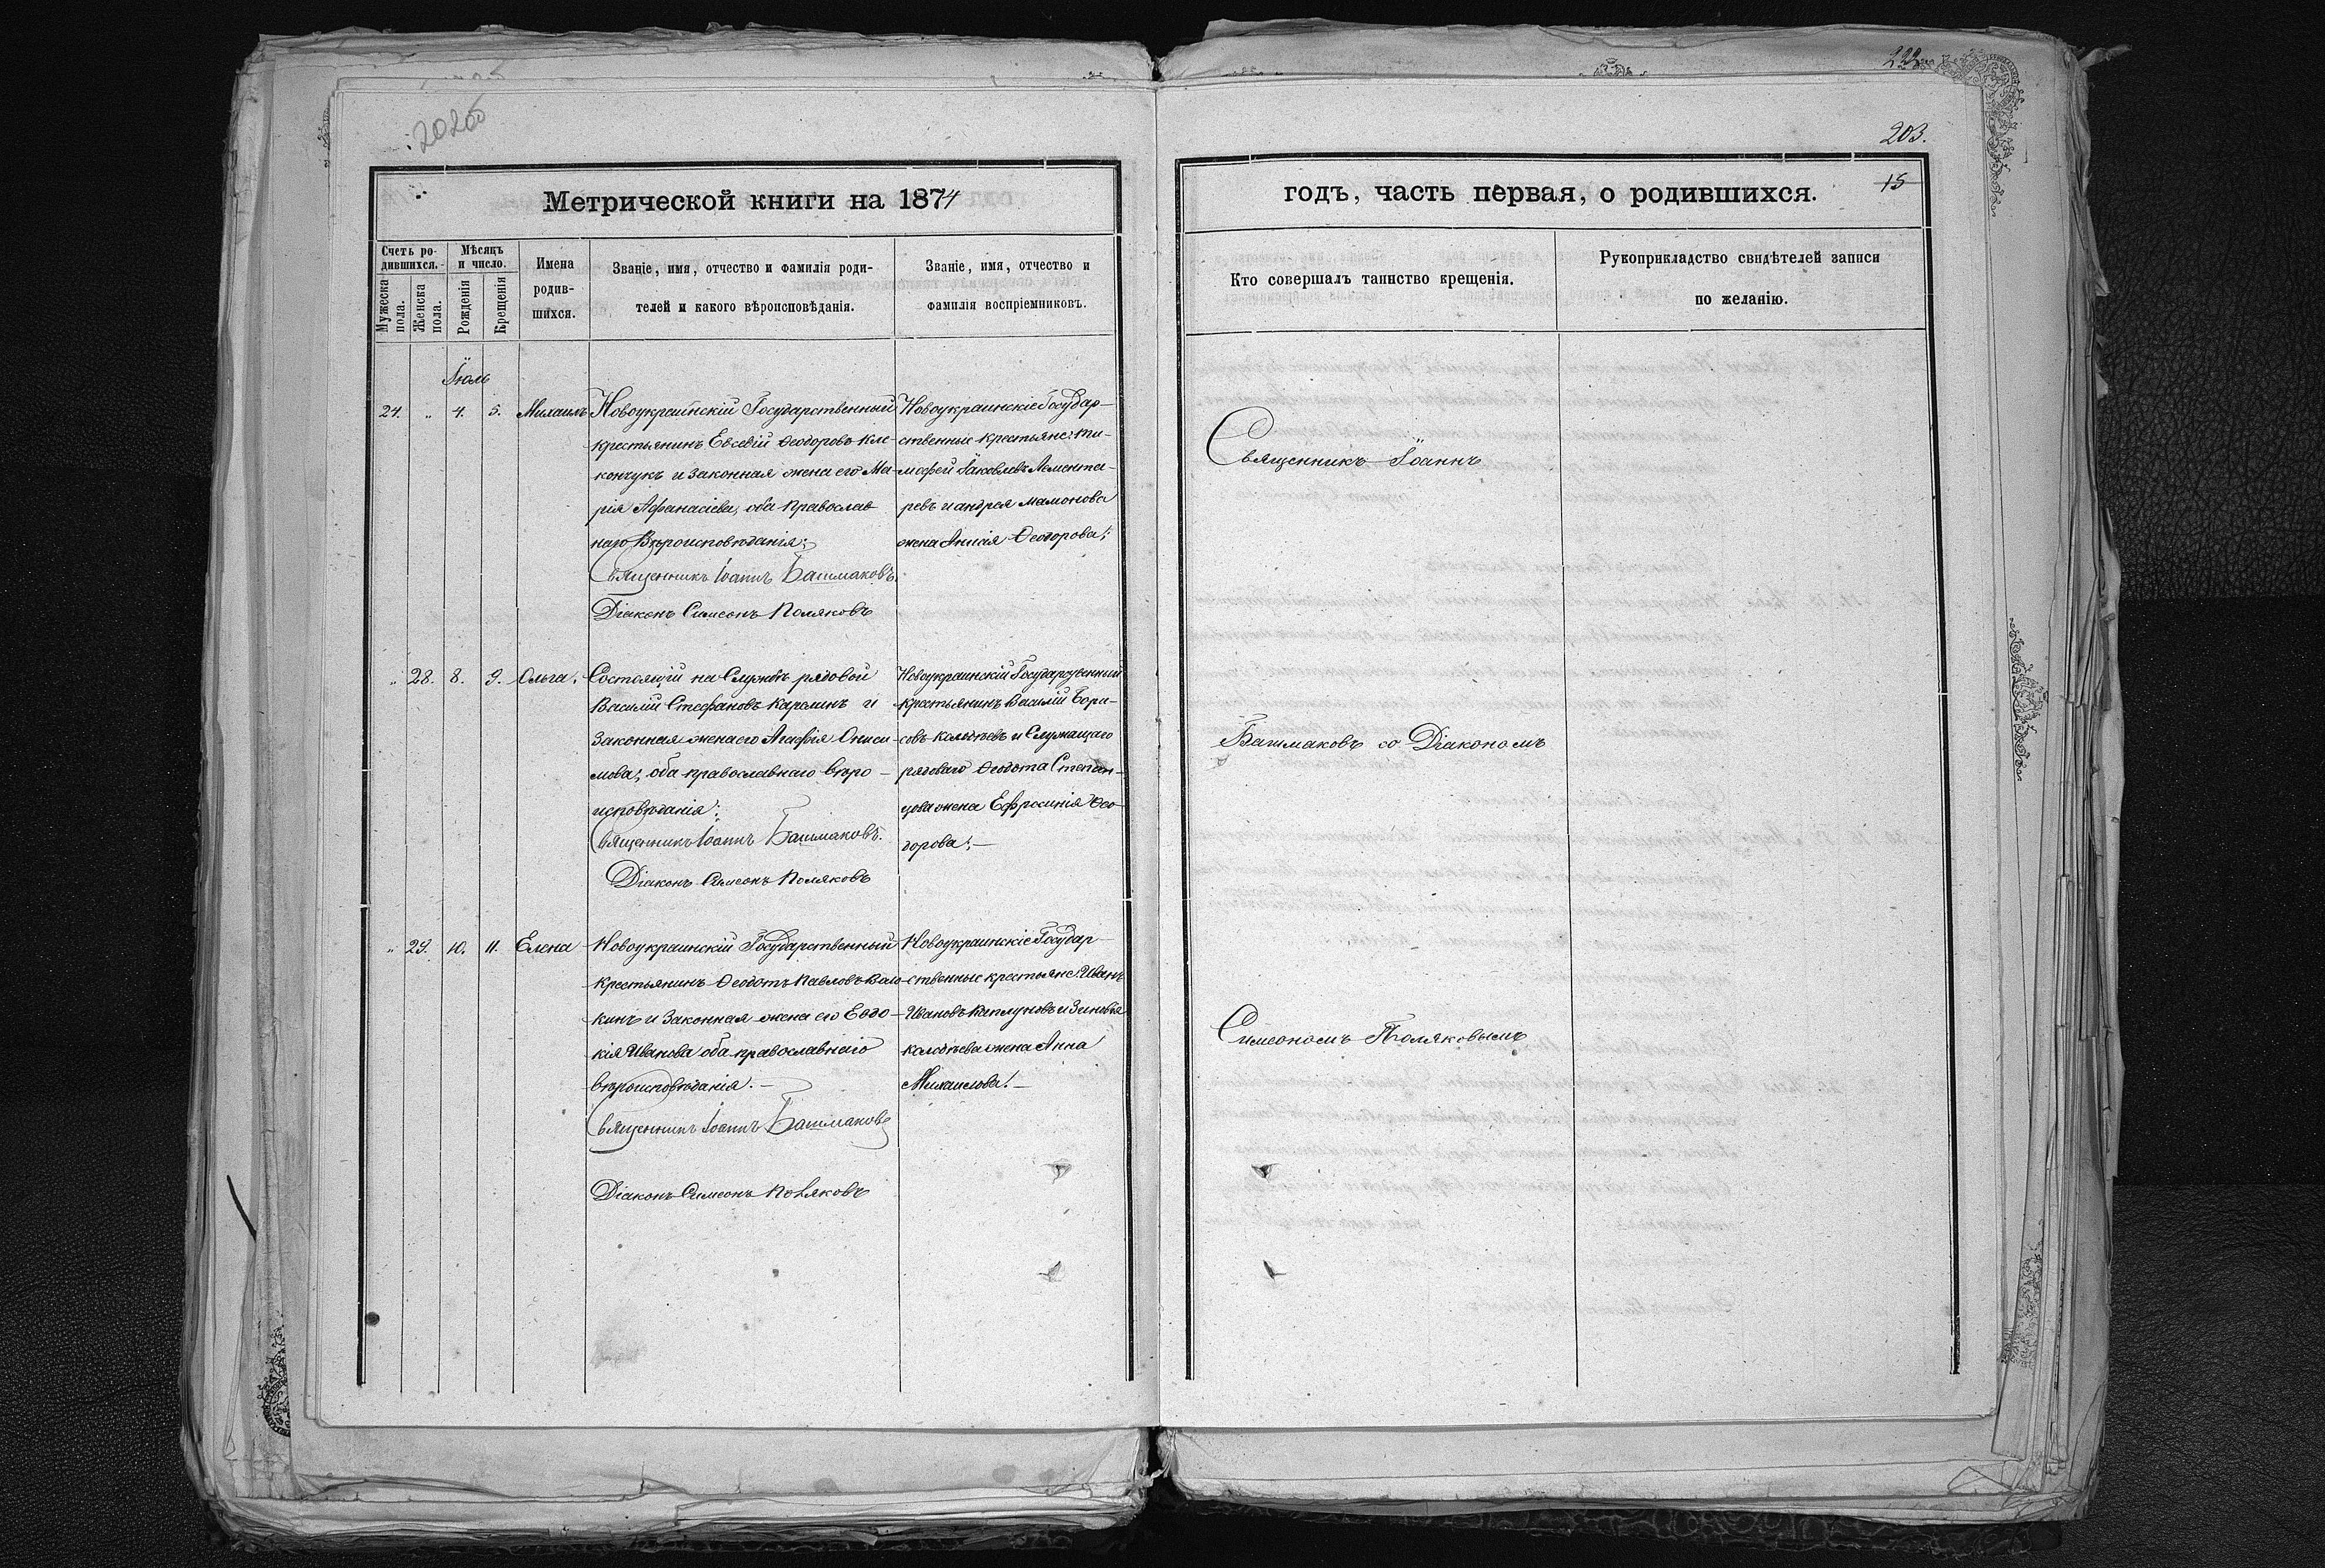 202об
222
203.
15
Метрической книги на 1874
годъ, часть первая, о родившихся.
Счетъ ро-
дившихся.
Мужеска пола.
Женска пола.
Мѣсяцъ
и число.
Рожденія
Крещенія
Имена
родив-
шихся.
Званіе, имя, отчество и фамилія роди-
телей и какого вѣроисповѣданія.
Званіе, имя, отчество и
фамилія воспріемниковъ.
Кто совершалъ таинство крещенія.
Рукоприкладство свидѣтелей записи
по желанію.
Іюль
24. „ 4. 5. Михаилъ
Новоукраинскій Государственный
крестьянинъ Евсевій Ѳеодоровъ Кле-
кончукъ и законная жена его Ма-
рія Афанасіева, оба православ
наго Вѣроисповѣданія;
Священникъ Іоаннъ Башмаковъ.
Діаконъ Симеонъ Поляковъ
Новоукраинскіе Государ-
ственніе крестьяне: Ти-
мофей Іаковлевъ Лемента-
ревъ и андрея Мамонова
жена Ѳеодорова;
Священникъ Іоаннъ
„ 28. 8. 9. Ольга.
Состоящій на Службѣ рядовой
Василій Стефановъ Карелинъ и
Законная жена его Агафія Ониси-
мова; оба православнаго вѣро-
исповѣданія;
Священникъ Іоаннъ Башмаковъ.
Діаконъ Симеонъ Поляковъ
Новоукраинскій Государственный
крестьянинъ Василій Бори-
совъ и Служащаго
рядоваго Ѳеодота Степан-
цова жена Ефросинія Ѳео-
дорова;—
Башмаковъ со Діакономъ
„ 29. 10. 11. Елена
Новоукраинскій Государственный
крестьянинъ Ѳеодотъ Павловъ
и Законная жена его Евдо-
кія Иванова оба православнаго
вѣроисповѣданія.—
Священникъ Іоаннъ Башмаковъ
Діаконъ Симеонъ Поляковъ
Новоукраинскіе Государ-
ственные крестьяне: Иванъ
Ивановъ Каплуновъ и Зиновья
жена Анна
Михаилова!—
Симеономъ Поляковымъ